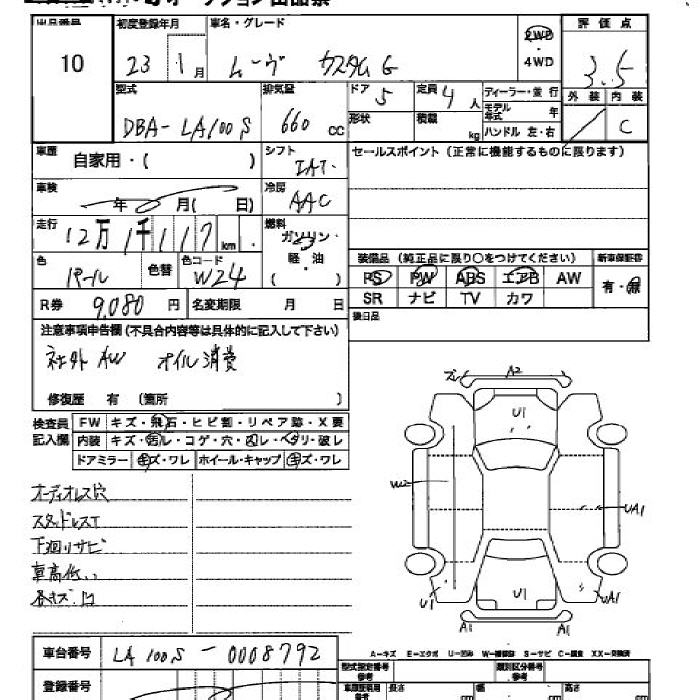 出品番号 初度登録年月 車名・グレード 2WD・4WD 評価点
10 23 1月 ムーヴ カスタム G 3.5
外装 内装
C
型式 排気量 ドア 定員 ディーラー・並行
DBA-LA100S 660 cc 5 4人 モデル年式 年
形状 積載 kg ハンドル 左・右
車歴 自家用・( ) シフト IAT.
セールスポイント(正常に機能するものに限ります)
車検 年 月( 日) 冷房 AAC
走行 12万1千117km 燃料 ガソリン・軽・油( )
装備品(純正品に限り○をつけてください) 新車保証書
色 パール 色替 色コード W24
PS PW ABS エアB AW 有・無
SR ナビ TV カワ
R券 9,080円 名変期限 月 日
後日品
注意事項申告欄(不具合内容等は具体的に記入して下さい)
社外AW オイル消費
修復歴 有(箇所 )
検査員記入欄 FW キズ・飛石・ヒビ割・リペア跡・X要
内装 キズ・汚レ・コゲ・穴・スレ・ベタリ・破レ
ドアミラー キズ・ワレ ホイール・キャップ キズ・ワレ
オーディオレス穴
スタッドレスT
下廻りサビ
車高低い
各キズ、凹
A2
U1
W2
UA1
U1
U1
UA1
A1 A1
A-キズ E-エクボ U-凹み W-補修跡 S-サビ C-腐食 XX-交換済
車台番号 LA100S-0008792
型式指定番号 類別区分番号
登録番号
長さ cm 幅 cm 高さ cm